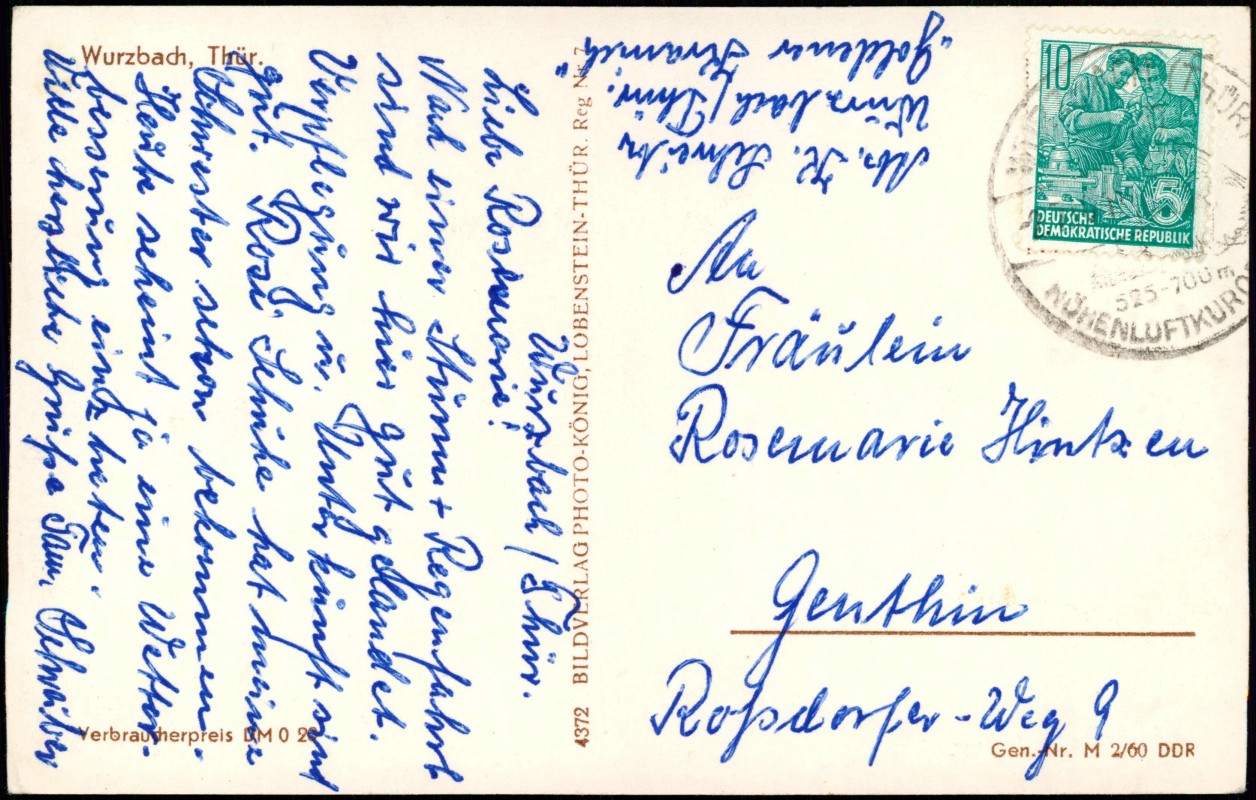 Wurzbach, Thür.
Wurzbach / Thür.
Liebe Rosemarie!
Nach einer Sturm + Regenfahrt
sind wir hier gut gelandet.
Verpflegung u. Unterkunft sind
gut. Rosi Schuhe hat meine
Schwester schon bekommen.
Heute scheint ja eine Wetter-
besserung einzutreten.
Viele herzliche Grüße Fam. Schreiber
Verbraucherpreis DM 0 2
4372 BILDVERLAG PHOTO-KÖNIG, LOBENSTEIN-THÜR. Reg Nr. 7
Abs. K. Schreiber
Wurzbach / Thür.
„Goldener Hirsch"
10
5
DEUTSCHE
DEMOKRATISCHE REPUBLIK
THÜR
525-700 m
HÖHENLUFTKURO
An
Fräulein
Rosemarie Hintzen
Genthin
Roßdorfer-Weg 9
Gen.-Nr. M 2/60 DDR